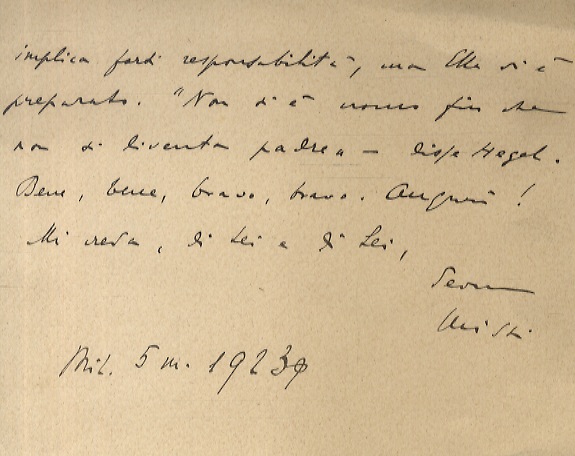 implica forti responsabilità, ma Ella vi è
preparato. "Non si è uomo fin che
non si diventa padre" — disse Hegel.
Bene, bene, bravo, bravo. Auguri!
Mi creda, di Lei e di Lei,
Mil. 5 m. 1923